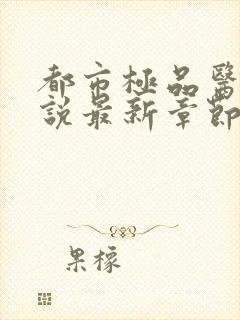 都市極品醫
說最新章節
果檬